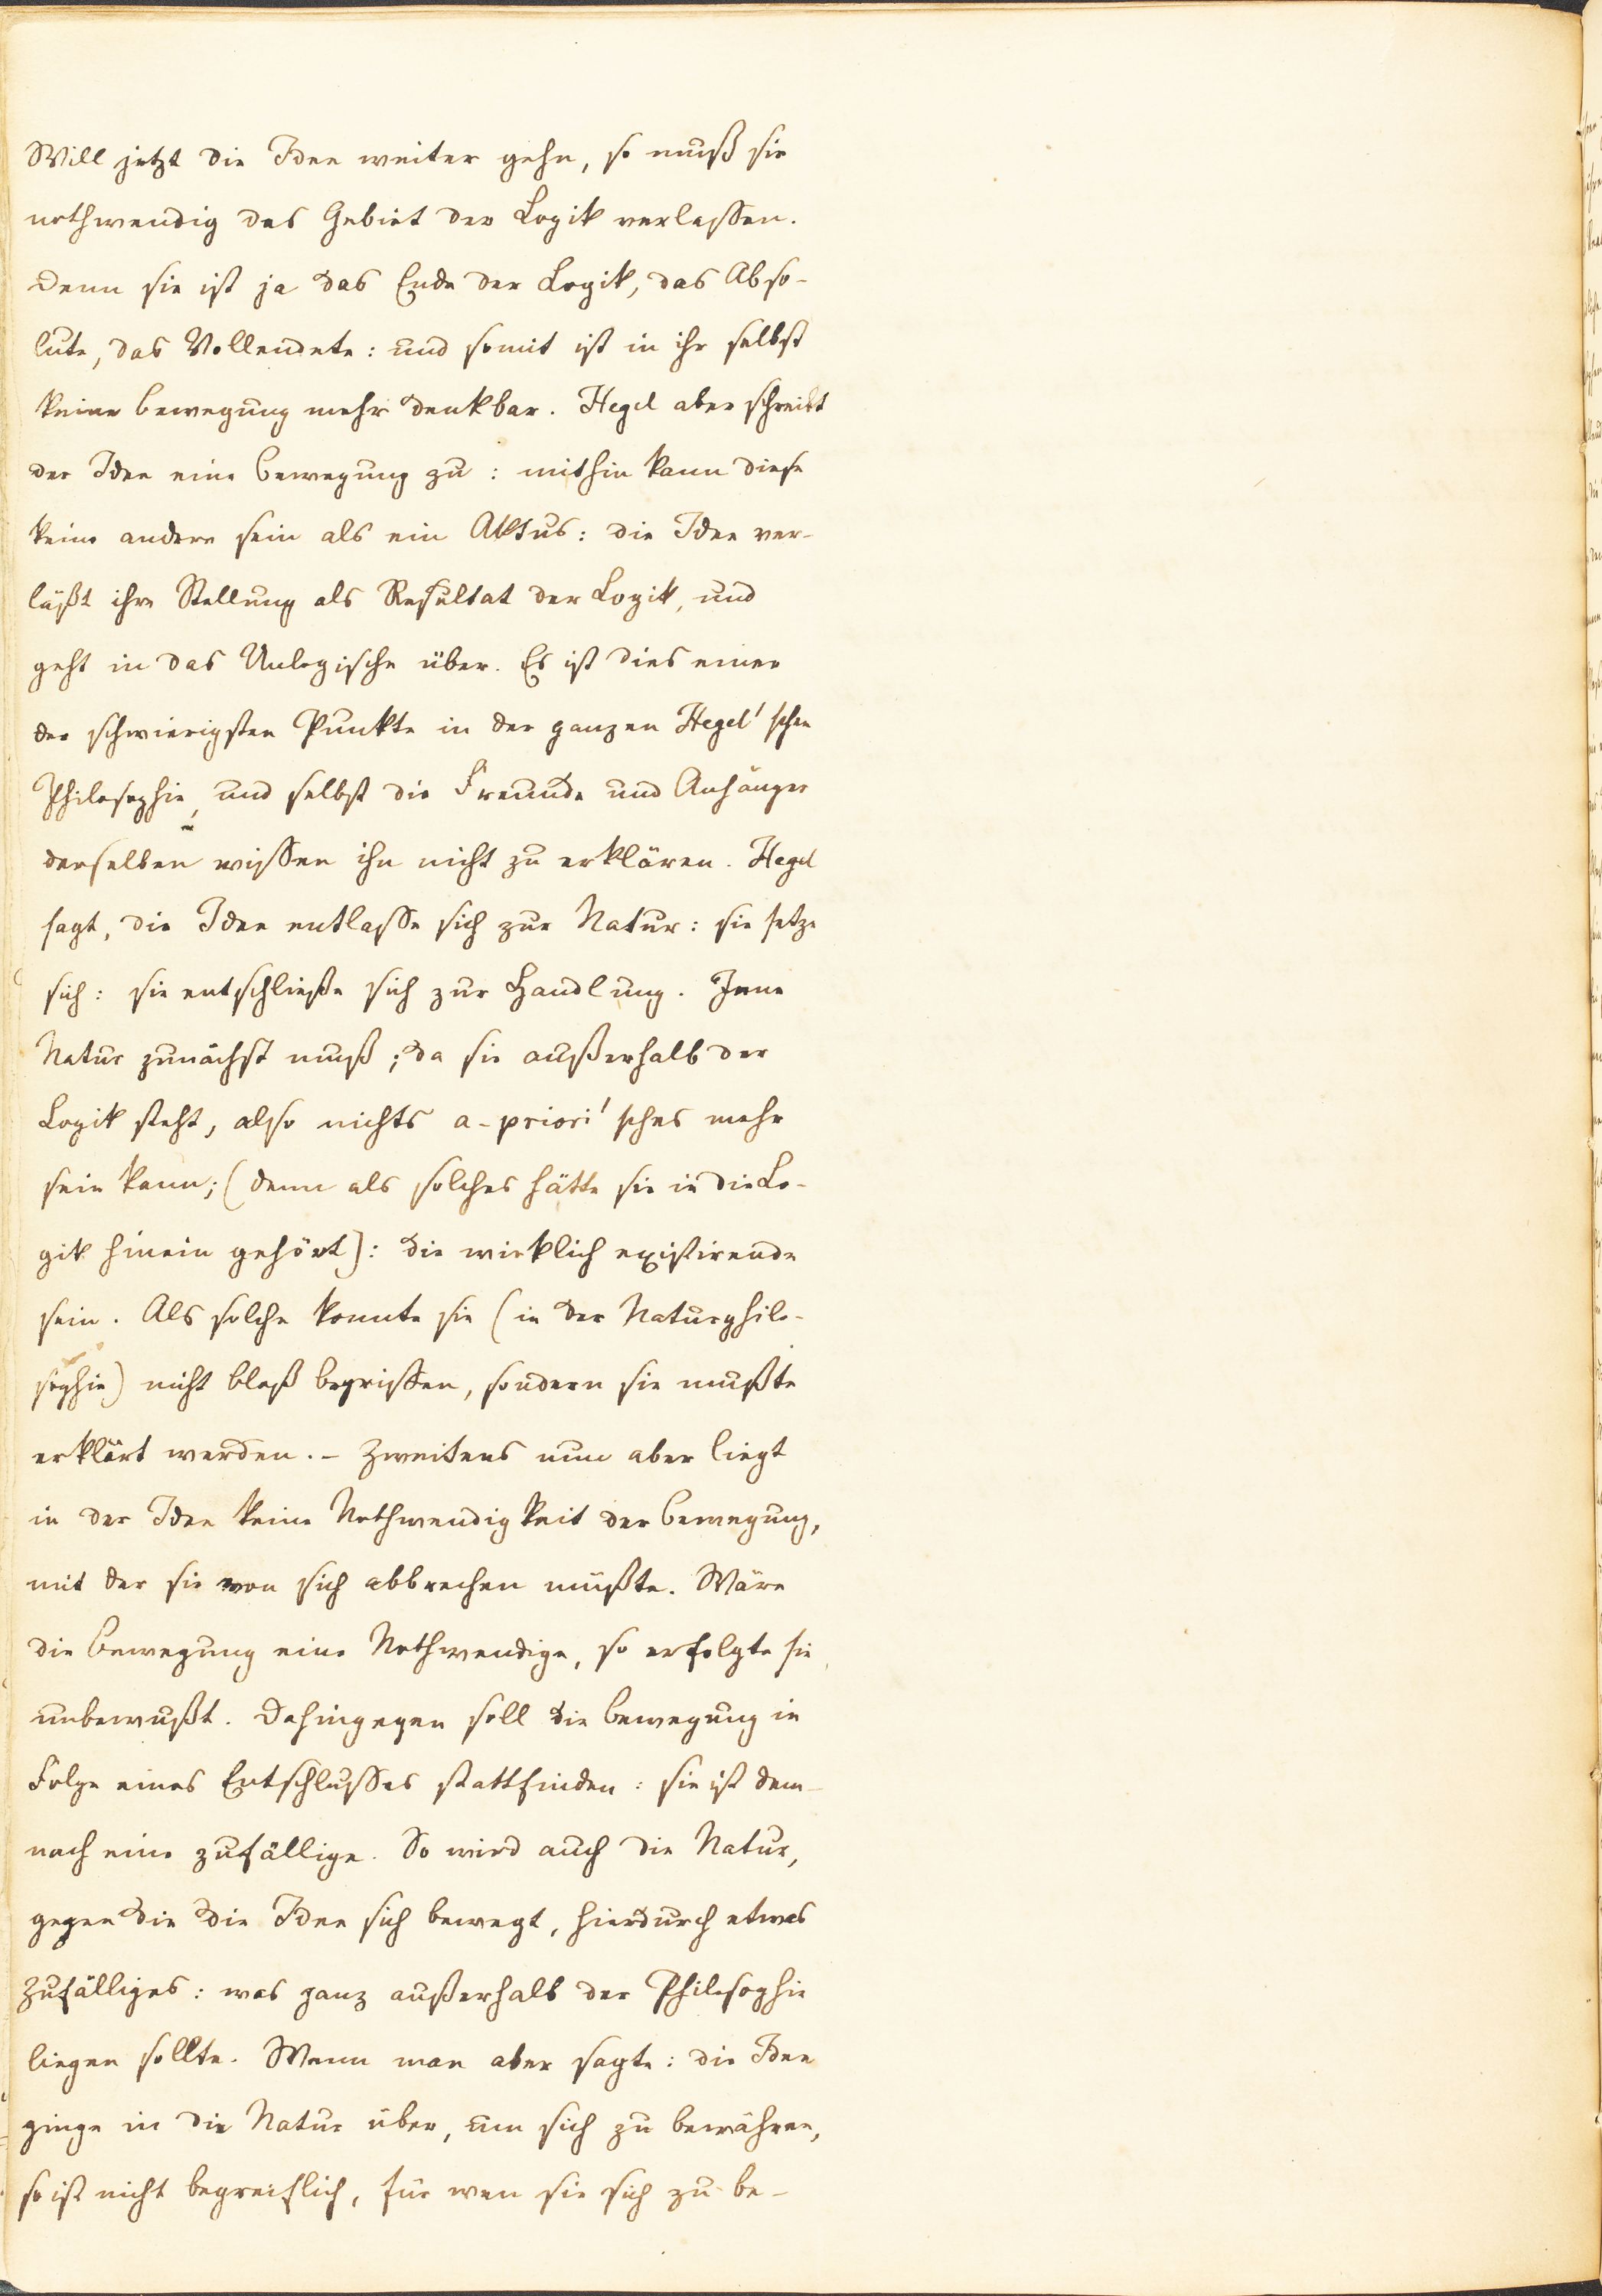 Will jetzt die Idee weiter gehn, so muß sie
nothwendig das Gebiet der Logik verlassen.
Denn sie ist ja das Ende der Logik, das Abso-
lute, das Vollendete: und somit ist in ihr selbst
keine Bewegung mehr denkbar. Hegel aber schreibt
der Idee eine Bewegung zu: mithin kann diese
keine andere sein als ein Aktus: die Idee ver-
läßt ihre Stellung als Resultat der Logik, und
geht in das Unlogische über. Es ist dies einer
der schwierigsten Punkte in der ganzen Hegel'schen
Philosophie, und selbst die Freunde und Anhänger
derselben wissen ihn nicht zu erklären. Hegel
sagt, die Idee entlasse sich zur Natur: sie setze
sich: sie entschließe sich zur Handlung. Jene
Natur zunächst muß; da sie außerhalb der
Logik steht, also nichts a-priori'sches mehr
sein kann; (denn als solches hätte sie in die Lo-
gik hinein gehört): die wirklich existirende
sein. Als solche konnte sie (in der Naturphilo-
sophie) nicht bloß begriffen, sondern sie mußte
erklärt werden. - Zweitens nun aber liegt
in der Idee keine Nothwendigkeit der Bewegung,
mit der sie von sich abbrechen müßte. Wäre
die Bewegung eine Nothwendige, so erfolgte sie
unbewußt. Dahingegen soll die Bewegung in
Folge eines Entschlusses stattfinden: sie ist dem-
nach eine zufällige. So wird auch die Natur,
gegen die die Idee sich bewegt, hierdurch etwas
Zufälliges: was ganz außerhalb der Philosophie
liegen sollte. Wenn man aber sagte: die Idee
ginge in die Natur über, um sich zu bewähren,
so ist nicht begreiflich, für wen sie sich zu be-